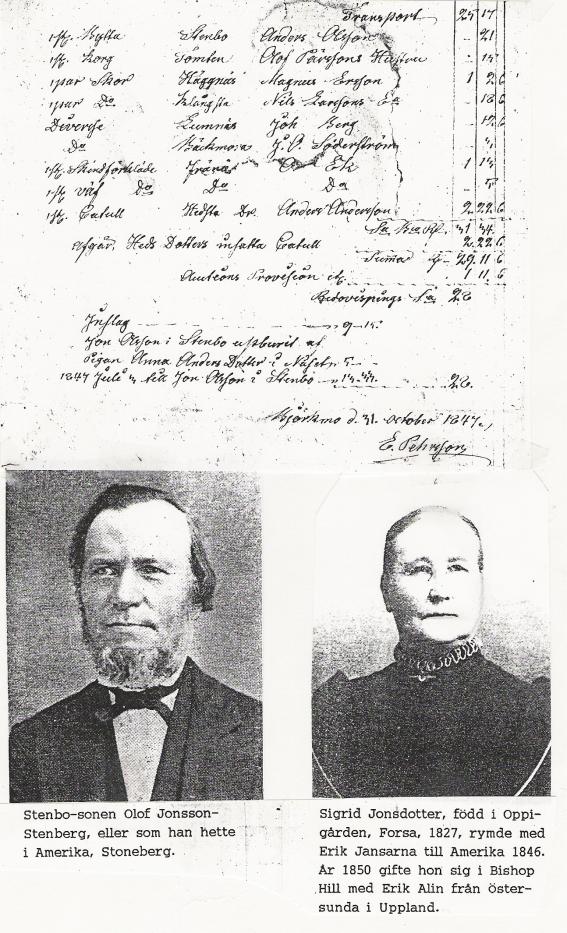 Transport 25 17
1 st. Kysta Stenbo Anders Olsson - 21
1 st. Korg Tomten Olof Pärssons Hustru
1 par Skor Häggnäs Magnus Ersson 1 2 6
1 par Do Klångsta Nils Larssons
Diverse Lumnäs Joh Berg
Do Bäckmora J. O. Söderström
1 st. Skindförkläde Fränö O Ek 1
1 st. Väf Do Do Do
1 st. Catull Hedsta Dr. Anders Andersson 2 22 6
31 34
afgår, Heds Dotters insatta Catull 2 22 6
Summa 29 11 6
Auctions Provision 1 11 6
Redovisnings 28
Inslag 9
Jon Olsson i Stenbo utburit af
Pigan Anna Anders Dotter i Näset
1847 Juli till Jon Olsson i Stenbo 28
Björkmo d. 31. October 1847.
E. Pehrsson
Stenbo-sonen Olof Jonsson-
Stenberg, eller som han hette
i Amerika, Stoneberg.
Sigrid Jonsdotter, född i Oppi-
gården, Forsa, 1827, rymde med
Erik Jansarna till Amerika 1846.
År 1850 gifte hon sig i Bishop
Hill med Erik Alin från öster-
sunda i Uppland.